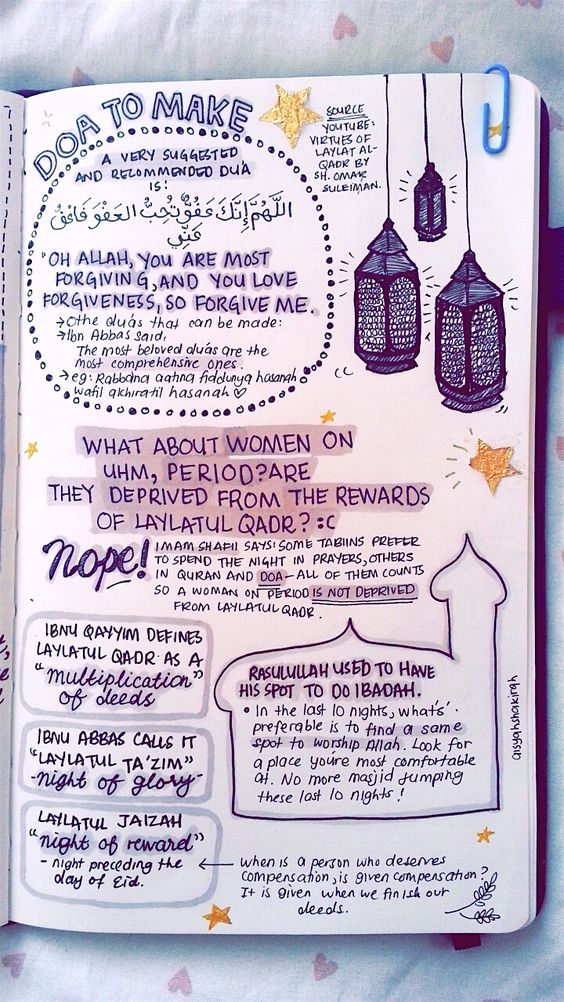 DOA TO MAKE
A VERY SUGGESTED
AND RECOMMENDED DUA
IS:
اللَّهُمَّ إِنَّكَ عَفُوٌّ تُحِبُّ العَفْوَ فَاعْفُ
عَنِّي
"OH ALLAH, YOU ARE MOST
FORGIVING, AND YOU LOVE
FORGIVENESS, SO FORGIVE ME.
→ Othe duás that can be made:
→ Ibn Abbas said,
The most beloved duás are the
most comprehensive ones.
→ eg: Rabbana aatina fiddunya hasanah
wafil akhiratil hasanah ♡
SOURCE
YOUTUBE:
VIRTUES OF
LAYLAT AL-
QADR BY
SH. OMAR
SULEIMAN.
WHAT ABOUT WOMEN ON
UHM, PERIOD? ARE
THEY DEPRIVED FROM THE REWARDS
OF LAYLATUL QADR? :C
Nope!
IMAM SHAFII SAYS: SOME TABIINS PREFER
TO SPEND THE NIGHT IN PRAYERS, OTHERS
IN QURAN AND DOA - ALL OF THEM COUNTS
SO A WOMAN ON PERIOD IS NOT DEPRIVED
FROM LAYLATUL QADR.
IBNU QAYYIM DEFINES
LAYLATUL QADR AS A
"multiplication"
of deeds
IBNU ABBAS CALLS IT
"LAYLATUL TA'ZIM"
-night of glory-
LAYLATUL JAIZAH
"night of reward"
- night preceding the
day of Eid.
RASULULLAH USED TO HAVE
HIS SPOT TO DO IBADAH.
• In the last 10 nights, what's'
preferable is to find a same
spot to worship Allah. Look for
a place you're most comfortable
at. No more masjid jumping
these last 10 nights!
aisyahshakirah
← when is a person who deserves
compensation, is given compensation?
It is given when we finish our
deeds.